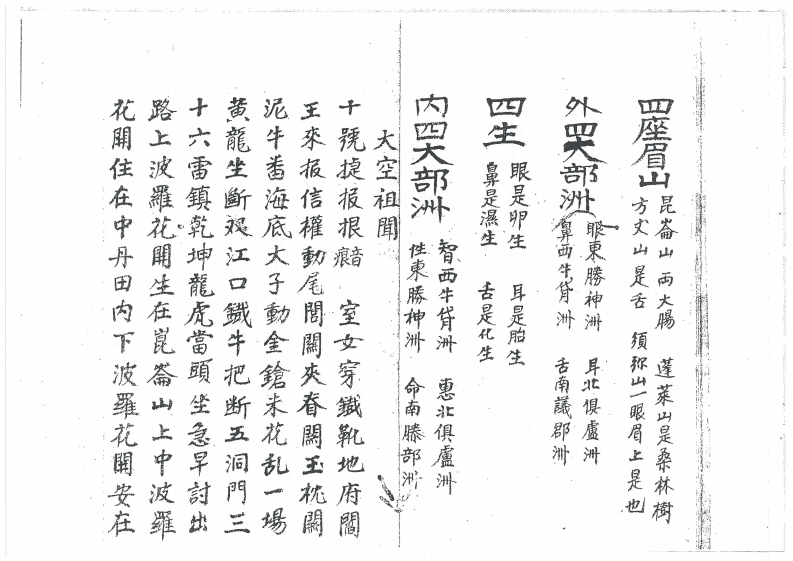 四座眉山 昆崙山兩大腸 蓬萊山是桑林樹
方丈山是舌 須弥山一眼眉上是也
外四大部洲 眼東勝神洲 耳北俱盧洲
鼻西牛貨洲 舌南議郡洲
四生 眼是卵生 耳是胎生
鼻是濕生 舌是化生
內四大部洲 智西牛貨洲 惠北俱盧洲
性東勝神洲 命南滕部洲
大空祖聞
十號提报报音痕 室女穿鐵靴地府閻
王來报信權動尾閭關夾脊關玉枕關
泥牛番海底大子動金鎗米花乱一場
黃龍坐斷双江口鐵牛把断五洞門三
十六雷鎮乾坤龍虎當頭坐急早討出
路上波羅花開生在崑崙山上中波羅
花開住在中丹田內下波羅花開安在